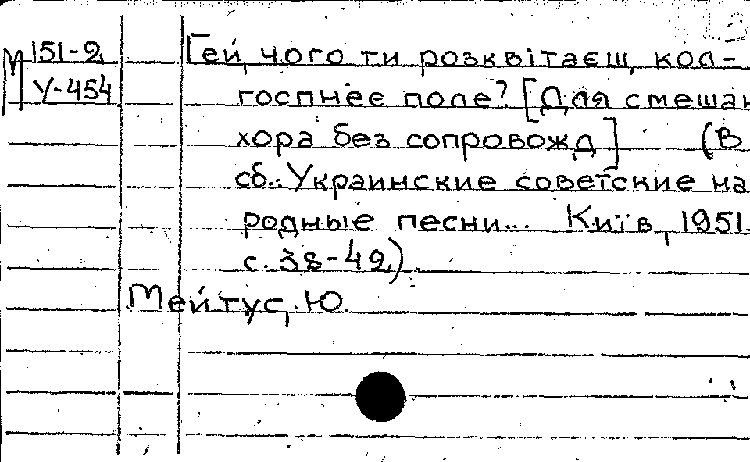 М 151-2
У-454
Гей, чого ти розквітаєш, кол-
госпнеє поле? [Для смешан
хора без сопровожд] (В
сб.: Украинские советские на
родные песни... Київ, 1951
с. 38-42)
Мейтус, Ю.